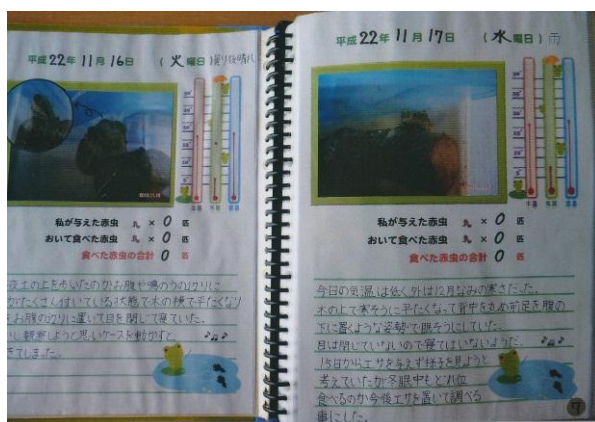 平成22年 11月 16日 (火曜日) 曇り後晴れ
私が与えた赤虫 × 0 匹
おいて食べた赤虫 × 0 匹
食べた赤虫の合計 0 匹
土の上を歩いたのかお腹や喉のうのまわりに
がたくさん付いている状態で木の横で平たくなり
お腹の辺りに置いて目を閉じて寝ていた。
観察しようと思いケースを動かすと
きてしまった。
平成22年 11月 17日 (水曜日) 雨
私が与えた赤虫 × 0 匹
おいて食べた赤虫 × 0 匹
食べた赤虫の合計 0 匹
今日の気温は低く外は12月なみの寒さだった。
木の上で寒そうに平たくなって背中を丸め前足を腹の
下に置くような姿勢で眠そうにしていた。
目は閉じていないので寝てはいないようだ。
15日からエサを与えず様子を見ようと
考えていたが冬眠中もどれ位
食べるのか今後エサを置いて調べる
事にした。
7